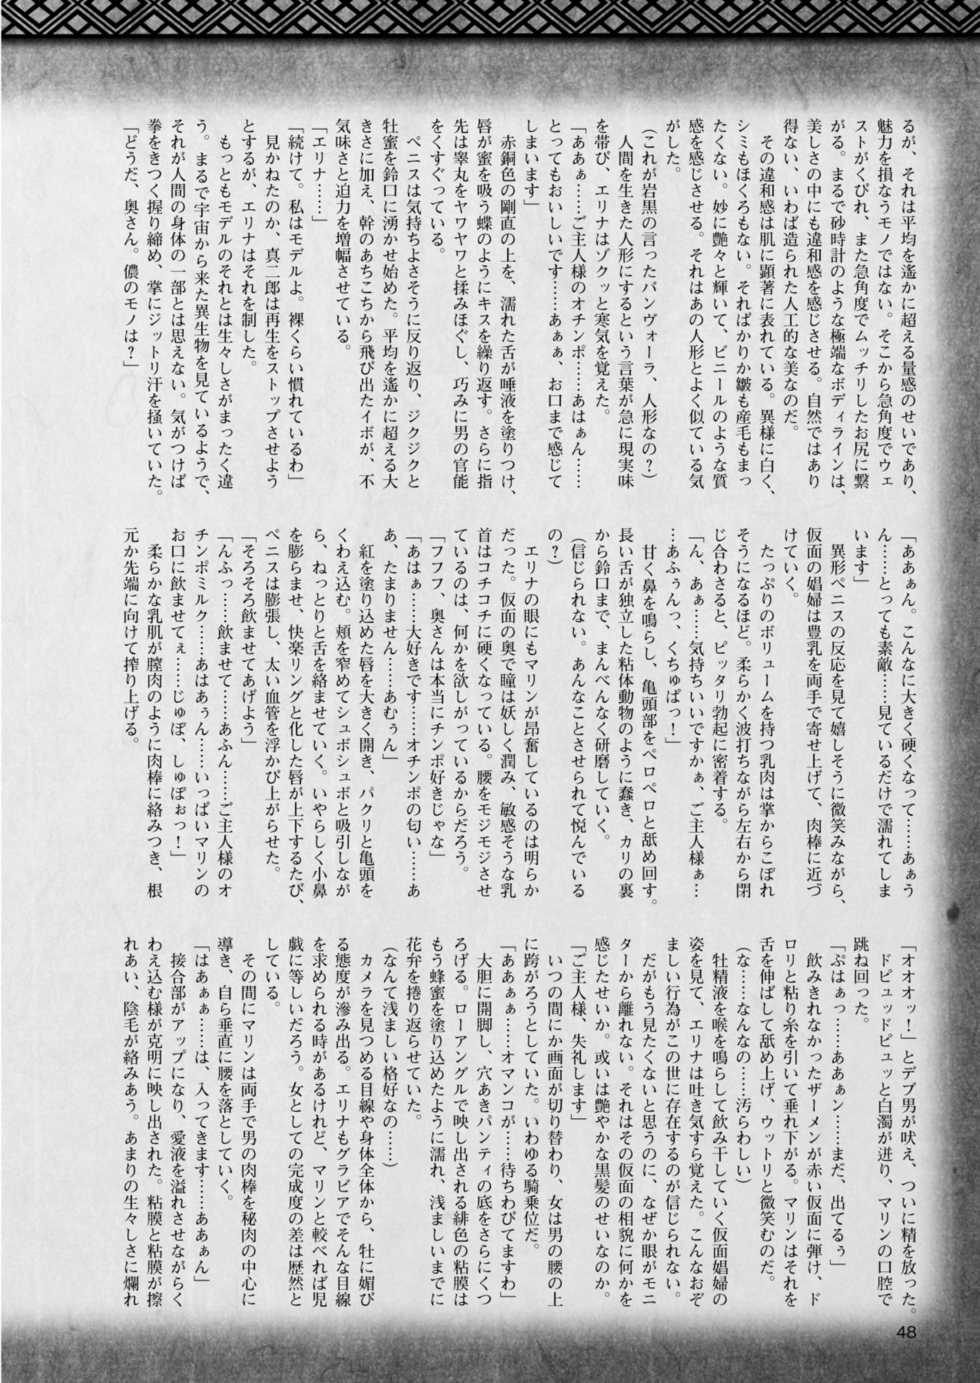 るが、それは平均を遙かに超える量感のせいであり、
魅力を損なうモノではない。そこから急角度でウェ
ストがくびれ、また急角度でムッチリしたお尻に繋
がる。まるで砂時計のような極端なボディラインは、
美しさの中にも違和感を感じさせる。自然ではあり
得ない、いわば造られた人工的な美なのだ。
その違和感は肌に顕著に表れている。異様に白く、
シミもほくろもない。そればかりか皺も産毛もまっ
たくない。妙に艶々と輝いて、ビニールのような質
感を感じさせる。それはあの人形とよく似ている気
がした。
（これが岩黒の言ったバンヴォーラ、人形なの？）
人間を生きた人形にするという言葉が急に現実味
を帯び、エリナはゾクッと寒気を覚えた。
「あぁぁ……ご主人様のオチンポ……あはぁん……
とってもおいしいです……あぁぁ、お口まで感じて
しまいます」
赤銅色の剛直の上を、濡れた舌が唾液を塗りつけ、
唇が蜜を吸う蝶のようにキスを繰り返す。さらに指
先は睾丸をヤワヤワと揉みほぐし、巧みに男の官能
をくすぐっている。
ペニスは気持ちよさそうに反り返り、ジクジクと
牡蜜を鈴口に湧かせ始めた。平均を遙かに超える大
きさに加え、幹のあちこちから飛び出たイボが、不
気味さと迫力を増幅させている。
「エリナ……」
「続けて。私はモデルよ。裸くらい慣れているわ」
見かねたのか、真二郎は再生をストップさせよう
とするが、エリナはそれを制した。
もっともモデルのそれとは生々しさがまったく違
う。まるで宇宙から来た異生物を見ているようで、
それが人間の身体の一部とは思えない。気がつけば
拳をきつく握り締め、掌にジットリ汗を掻いていた。
「どうだ、奥さん。儂のモノは？」
「ああぁん。こんなに大きく硬くなって……あぁぅ
ん……とっても素敵……見ているだけで濡れてしま
います」
異形ペニスの反応を見て嬉しそうに微笑みながら、
仮面の娼婦は豊乳を両手で寄せ上げて、肉棒に近づ
けていく。
たっぷりのボリュームを持つ乳肉は掌からこぼれ
そうになるほど。柔らかく波打ちながら左右から閉
じ合わさると、ピッタリ勃起に密着する。
「ん、あぁ……気持ちいいですかぁ、ご主人様ぁ…
…あふぅんっ、くちゅばっ！」
甘く鼻を鳴らし、亀頭部をペロペロと舐め回す。
長い舌が独立した粘体動物のように蠢き、カリの裏
から鈴口まで、まんべんなく研磨していく。
（信じられない。あんなことさせられて悦んでいる
の？）
エリナの眼にもマリンが昂奮しているのは明らか
だった。仮面の奥で瞳は妖しく潤み、敏感そうな乳
首はコチコチに硬くなっている。腰をモジモジさせ
ているのは、何かを欲しがっているからだろう。
「フフフ、奥さんは本当にチンポ好きじゃな」
「あはぁ……大好きです……オチンポの匂い……あ
あ、たまりません……あむぅん」
紅を塗り込めた唇を大きく開き、パクリと亀頭を
くわえ込む。頬を窄めてシュボシュボと吸引しなが
ら、ねっとりと舌を絡ませていく。いやらしく小鼻
を膨らませ、快楽リングと化した唇が上下するたび、
ペニスは膨張し、太い血管を浮かび上がらせた。
「そろそろ飲ませてあげよう」
「んふっ……飲ませて……あふん……ご主人様のオ
チンポミルク……あはあぅん……いっぱいマリンの
お口に飲ませてぇ……じゅぽ、しゅぽぉっ！」
柔らかな乳肌が膣肉のように肉棒に絡みつき、根
元か先端に向けて搾り上げる。
「オオオッ！」とデブ男が吠え、ついに精を放った。
ドピュッドピュッと白濁が迸り、マリンの口腔で
跳ね回った。
「ぷはぁっ……ああぁン……まだ、出てるぅ」
飲みきれなかったザーメンが赤い仮面に弾け、ド
ロリと粘り糸を引いて垂れ下がる。マリンはそれを
舌を伸ばして舐め上げ、ウットリと微笑むのだ。
（な……なんなの……汚らわしい）
牡精液を喉を鳴らして飲み干していく仮面娼婦の
姿を見て、エリナは吐き気すら覚えた。こんなおぞ
ましい行為がこの世に存在するのが信じられない。
だがもう見たくないと思うのに、なぜか眼がモニ
ターから離れない。それはその仮面の相貌に何かを
感じたせいか。或いは艶やかな黒髪のせいなのか。
「ご主人様、失礼します」
いつの間にか画面が切り替わり、女は男の腰の上
に跨がろうとしていた。いわゆる騎乗位だ。
「ああぁぁ……オマンコが……待ちわびてますわ」
大胆に開脚し、穴あきパンティの底をさらにくつ
ろげる。ローアングルで映し出される緋色の粘膜は
もう蜂蜜を塗り込めたように濡れ、浅ましいまでに
花弁を捲り返らせていた。
（なんて浅ましい格好なの……）
カメラを見つめる目線や身体全体から、牡に媚び
る態度が滲み出る。エリナもグラビアでそんな目線
を求められる時があるけれど、マリンと較べれば児
戯に等しいだろう。女としての完成度の差は歴然と
している。
その間にマリンは両手で男の肉棒を秘肉の中心に
導き、自ら垂直に腰を落としていく。
「はあぁぁ……は、入ってきます……ああぁん」
接合部がアップになり、愛液を溢れさせながらく
わえ込む様が克明に映し出された。粘膜と粘膜が擦
れあい、陰毛が絡みあう。あまりの生々しさに爛れ
48